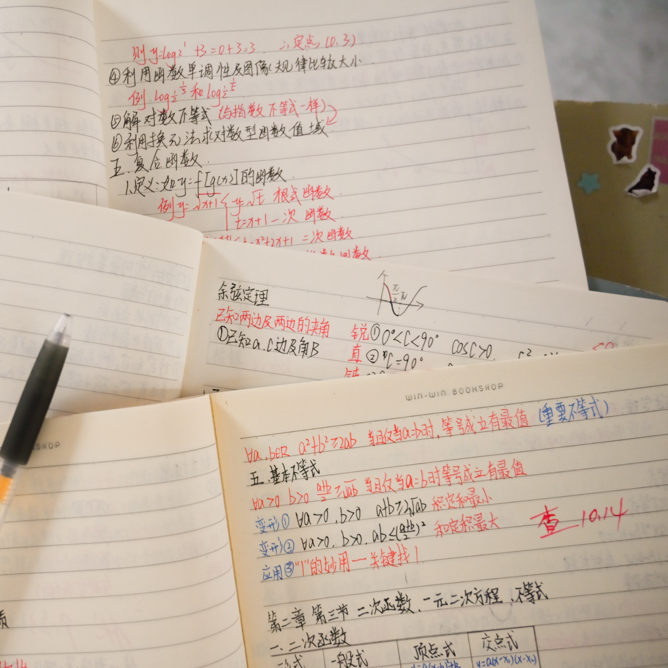 则 y=log2¹+3=0+3=3 ∴定点(0.3)
④利用函数单调性及图像规律比较大小
例 log
和 log
⑤解对数不等式(与指数不等式一样)
⑥利用换元法求对数型函数值域
五.复合函数
1.定义:如y=f[g(x)]的函数
例y=√x+1 y=√t 根式函数
t=x+1 一次函数
+2x+1 二次函数
余弦定理
已知两边及两边的夹角
①已知a.c边及角B
锐①0°<C<90° cosC>0
直②C=90°
WIN-WIN BOOKSHOP
∀a.b∈R a²+b²≥2ab 当且仅当a=b时,等号成立有最值 (重要不等式)
五.基本不等式
∀a>0 b>0 (a+b)/2≥√ab 当且仅当a=b时等号成立有最值
变形① ∀a>0.b>0 a+b≥2√ab 积定和最小
变形② ∀a>0.b>0.ab≤((a+b)/2)² 和定积最大
应用③"1"的妙用一关键找1
查 10.14
第二章 第三节 二次函数.一元二次方程.不等式
一.二次函数
一般式 顶点式 交点式
y=a(x-x₁)(x-x₂)
KSHOP